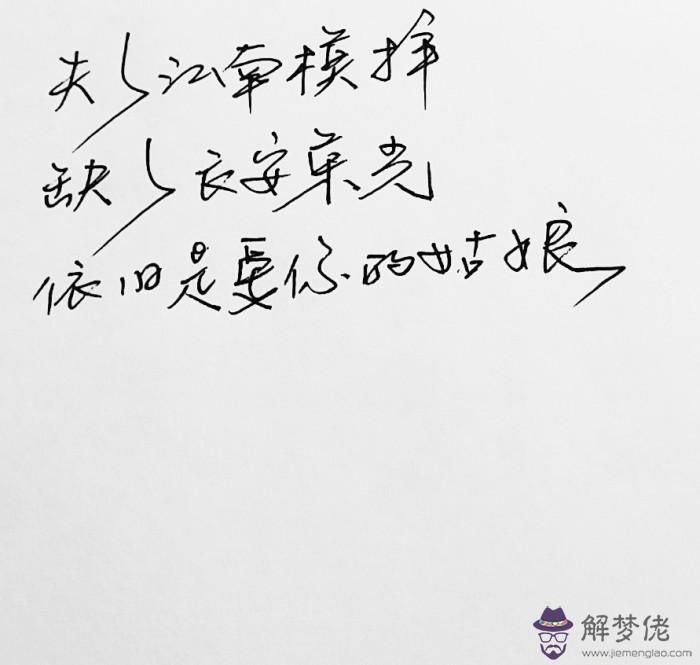 失了江南模样
缺了长安荣光
依旧是爱你的姑娘
解梦佬
www.jiemenglao.com